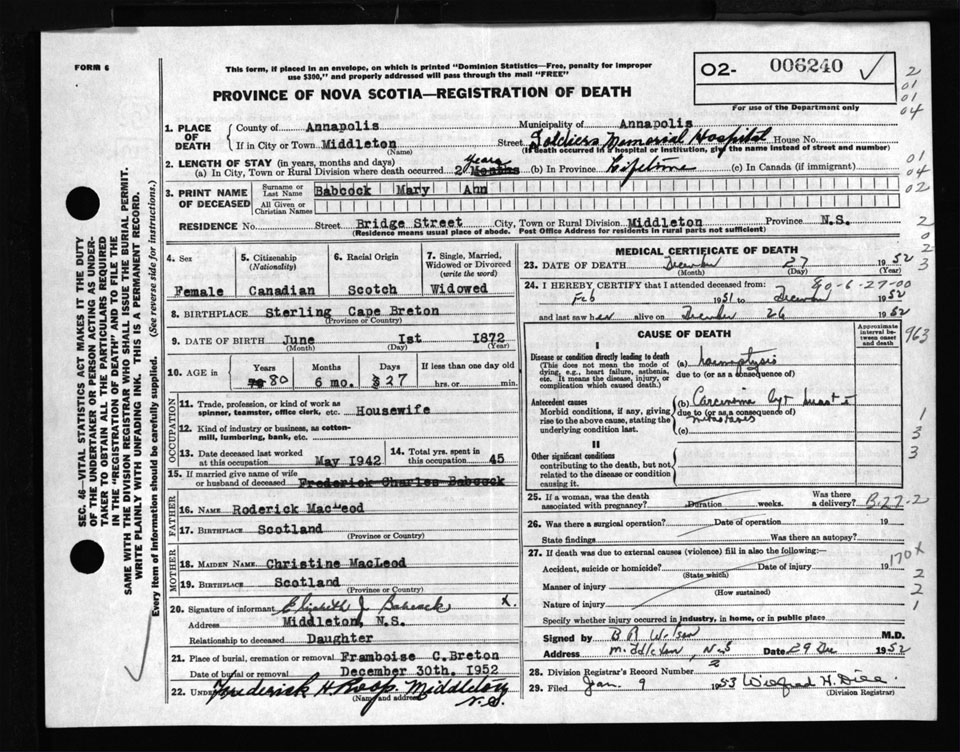 FORM 6
This form, if placed in an envelope, on which is printed "Dominion Statistics—Free, penalty for improper
use $300," and properly addressed will pass through the mail "FREE"
PROVINCE OF NOVA SCOTIA—REGISTRATION OF DEATH
02- 006240 ✓
For use of the Department only
2
01
01
04
1. PLACE OF DEATH
County of Annapolis Municipality of Annapolis
If in City or Town Middleton (Name) Street Soldiers Memorial Hospital House No.
(If death occurred in a hospital or institution, give the name instead of street and number)
2. LENGTH OF STAY (in years, months and days)
(a) In City, Town or Rural Division where death occurred 2 years Months (b) In Province Lifetime (c) In Canada (if immigrant)
01
04
02
3. PRINT NAME OF DECEASED
Surname or Last Name Babcock Mary Ann
All Given or Christian Names
RESIDENCE No. Street Bridge Street City, Town or Rural Division Middleton Province N.S.
(Residence means usual place of abode. Post Office Address for residents in rural parts not sufficient)
2
0
2
3
4. Sex Female
5. Citizenship (Nationality) Canadian
6. Racial Origin Scotch
7. Single, Married, Widowed or Divorced (write the word) Widowed
8. BIRTHPLACE Sterling Cape Breton
(Province or Country)
9. DATE OF BIRTH June 1st 1872
(Month) (Day) (Year)
10. AGE in Years 80 Months 6 mo. Days 27 If less than one day old hrs. or min.
OCCUPATION
11. Trade, profession, or kind of work as
spinner, teamster, office clerk, etc. Housewife
12. Kind of industry or business, as cotton-
mill, lumbering, bank, etc.
13. Date deceased last worked
at this occupation May 1942
14. Total yrs. spent in
this occupation 45
15. If married give name of wife
or husband of deceased Frederick Charles Babcock
FATHER
16. Name Roderick MacLeod
17. Birthplace Scotland
(Province or Country)
MOTHER
18. Maiden Name Christine MacLeod
19. Birthplace Scotland
(Province or Country)
20. Signature of informant Elizabeth J Babcock X.
Address Middleton, N.S.
Relationship to deceased Daughter
21. Place of burial, cremation or removal Framboise C.Breton
Date of burial or removal December 30th. 1952
22. Frederick H. Roop. Middleton N.S.
(Name and address)
MEDICAL CERTIFICATE OF DEATH
23. DATE OF DEATH December 27 1952
(Month) (Day) (Year)
24. I HEREBY CERTIFY that I attended deceased from: 80-6-27-00
Feb 1951 to December 1952
and last saw her alive on December 26 1952
CAUSE OF DEATH
Approximate interval between onset and death
963
I
Disease or condition directly leading to death
(This does not mean the mode of
dying, e.g., heart failure, asthenia,
etc. It means the disease, injury, or
complication which caused death.)
(a) haemoptysis
due to (or as a consequence of)
Antecedent causes
Morbid conditions, if any, giving
rise to the above cause, stating the
underlying condition last.
(b) Carcinoma
due to (or as a consequence of)
metastases
(c)
1
3
3
II
Other significant conditions
contributing to the death, but not
related to the disease or condition
causing it.
25. If a woman, was the death
associated with pregnancy? Duration weeks. Was there a delivery? B-27-2
26. Was there a surgical operation? Date of operation 19
State findings Was there an autopsy?
27. If death was due to external causes (violence) fill in also the following:—
Accident, suicide or homicide? Date of injury 19
(State which)
170X
Manner of injury
(How sustained)
Nature of injury
2
2
1
Specify whether injury occurred in industry, in home, or in public place
Signed by B R Wilson M.D.
Address Middleton, N.S Date 29 Dec 1952
28. Division Registrar's Record Number 2
29. Filed Jan. 9 1953 Wilfred H. Dill.
(Division Registrar)
SEC. 46—VITAL STATISTICS ACT MAKES IT THE DUTY
OF THE UNDERTAKER OR PERSON ACTING AS UNDER-
TAKER TO OBTAIN ALL THE PARTICULARS REQUIRED
IN THE "REGISTRATION OF DEATH" AND TO FILE THE
SAME WITH THE DIVISION REGISTRAR WHO SHALL ISSUE THE BURIAL PERMIT.
WRITE PLAINLY WITH UNFADING INK. THIS IS A PERMANENT RECORD.
Every item of information should be carefully supplied. (See reverse side for instructions.)